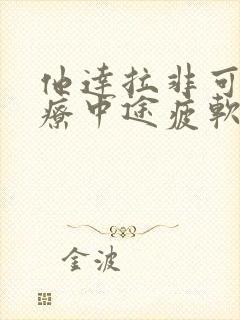 他達拉非可
療中途疲軟
金波